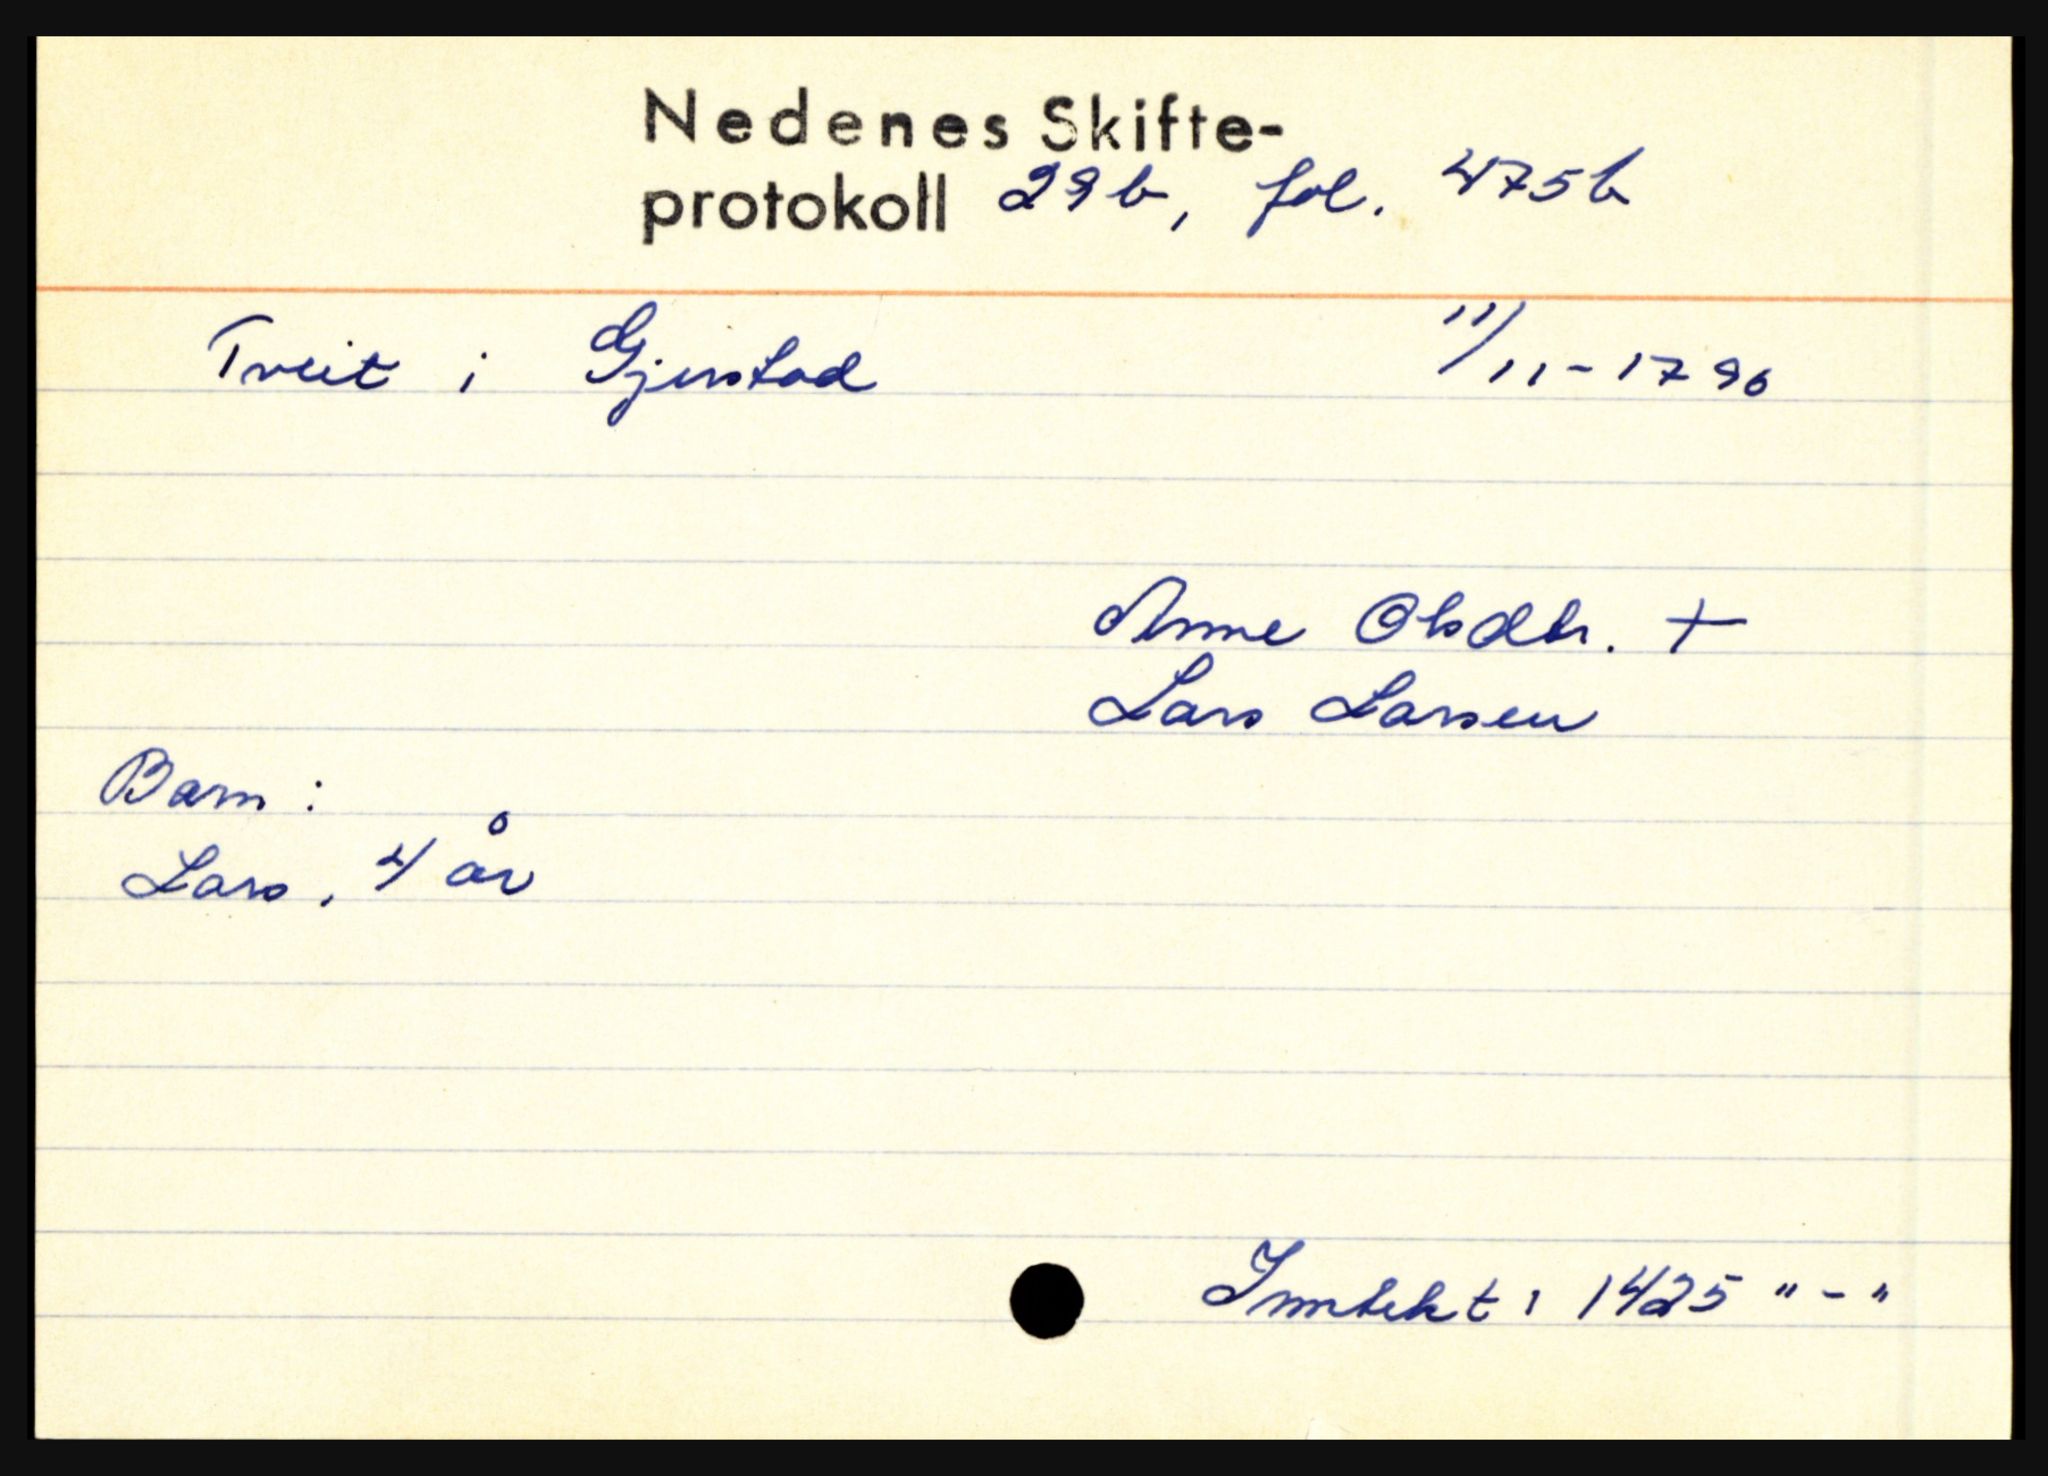 Nedenes Skifte-
protokoll 29b, fol. 475b
Tveit i Gjerstad 11/11-1790
Anne Olsdtr. +
Lars Larsen
Barn:
Lars, 4 år
Inntekt: 1425 "-"